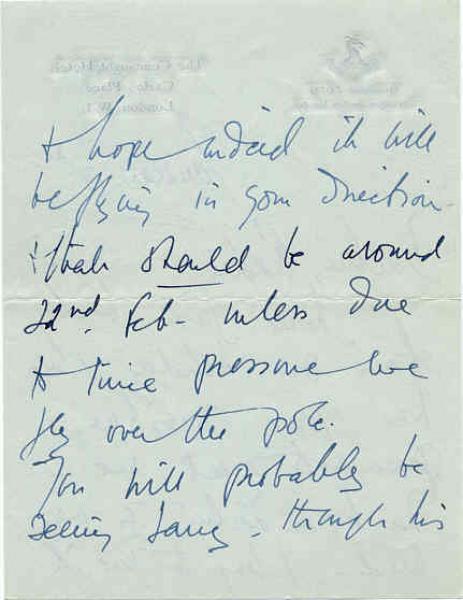 The Connaught Hotel
Carlos Place
London, W.1.
& hope indeed it will
be flying in your direction -
& that should be around
22nd. Feb - unless due
to time pressure we
fly over the pole.
You will probably be
seeing Larry - though his